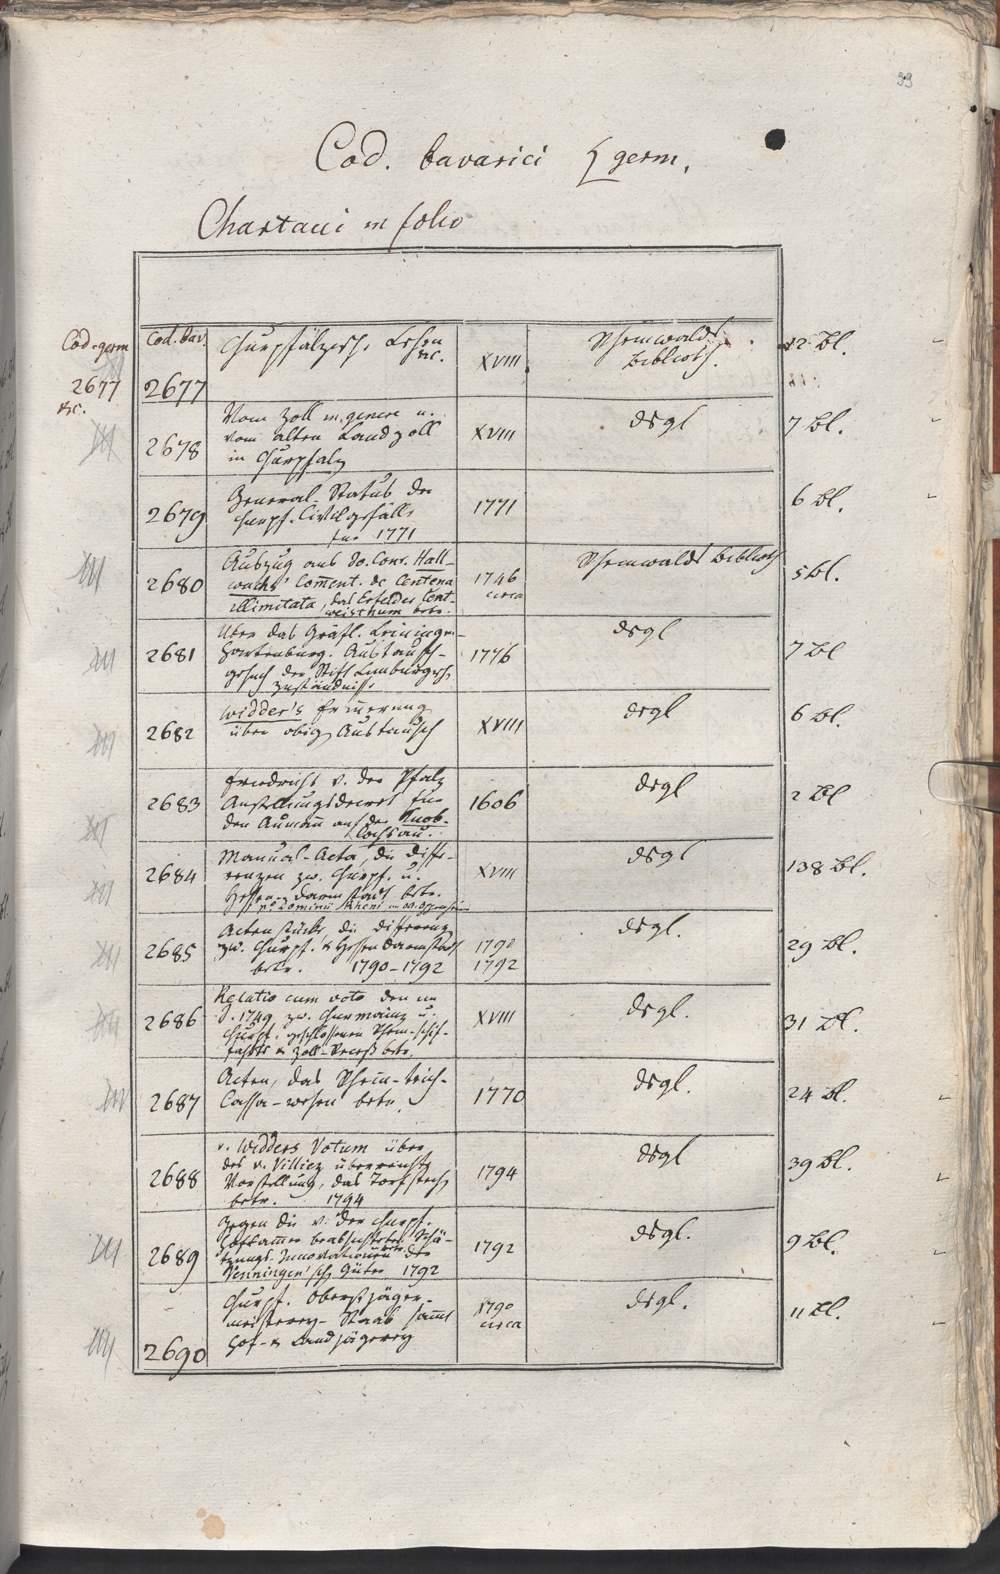 99
Cod. bavarici & germ.
Chartacei in folio
Cod. germ
2677
&c.
Cod. bav.
2677
Churpfälzisch. Lehen
&c.
XVIII
Rheinwalds
Biblioth.
12 Bl.
2678
Vom Zoll in genere u.
vom alten Landzoll
in Churpfalz
XVIII
dsgl
7 Bl.
2679
General-Status der
churpf. Civilgefälle
für 1771
1771
6 Bl.
2680
Auszug aus do. Cons. Hall-
wachs' Coment. de Centena
illimitata, das Erfelder Cent-
weisthum betr.
1746
circa
Rheinwalds Biblioth
5 Bl.
2681
Über das Gräfl. Leiningen-
Hartenburg. Austausch-
gesuch der Stift Limburgisch
Zuständnisse
1776
dsgl
7 Bl
2682
Widder's Erinnerung
über obig Austausch
XVIII
dsgl
6 Bl.
2683
Friedrichs v. der Pfalz
Anstellungsdecret für
den Aumann auf der Knob-
lochsau.
1606
dsgl
2 Bl
2684
Manual-Acta, die Diffe-
renzen zw. Churpf. u.
Hessen-Darmstadt betr.
XVIII
dsgl
138 Bl.
2685
Actenstücke die Differenz
zw. Churpf. & Hessen Darmstadt
betr. 1790-1792
1790
1792
dsgl.
29 Bl.
2686
Relatio cum voto den im
J. 1749 zw. Churmainz u.
Churpf. geschlossenen Rhein-schif-
fahrts & Zoll-Receß betr.
XVIII
dsgl.
31 Bl.
2687
Acten, das Rhein-teich-
Cassa-wesen betr.
1770
dsgl.
24 Bl.
2688
v. Widders Votum über
des v. Villiez überreichte
Vorstellung, das Torfstech.
betr. 1794
1794
dsgl
39 Bl.
2689
Gegen die v. der churpf.
Hofkammer beabsichtete Schä-
tzungs-Innovation der
Venningen'sch. Güter 1792
1792
dsgl.
9 Bl.
2690
Churpf. Oberstjäger-
meisterey-Staab sammt
Hof- & Landjägerey
1790
circa
dsgl.
11 Bl.